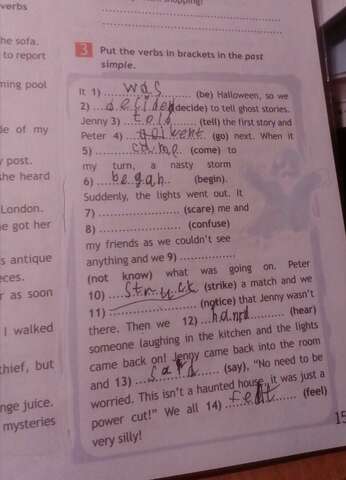 verbs
he sofa.
to report
ming pool
le of my
y post.
she heard
London.
e got her
s antique
eces.
r as soon
I walked
thief, but
nge juice.
mysteries
3 Put the verbs in brackets in the past
simple.
It 1) was (be) Halloween, so we
2) decided (decide) to tell ghost stories.
Jenny 3) told (tell) the first story and
Peter 4) went (go) next. When it
5) came (come) to
my turn, a nasty storm
6) began (begin).
Suddenly, the lights went out. It
7) (scare) me and
8) (confuse)
my friends as we couldn't see
anything and we 9)
(not know) what was going on. Peter
10) struck (strike) a match and we
11) (notice) that Jenny wasn't
there. Then we 12) (hear)
someone laughing in the kitchen and the lights
came back on! Jenny came back into the room
and 13) said (say), "No need to be
worried. This isn't a haunted house, it was just a
power cut!" We all 14) felt (feel)
very silly!
15